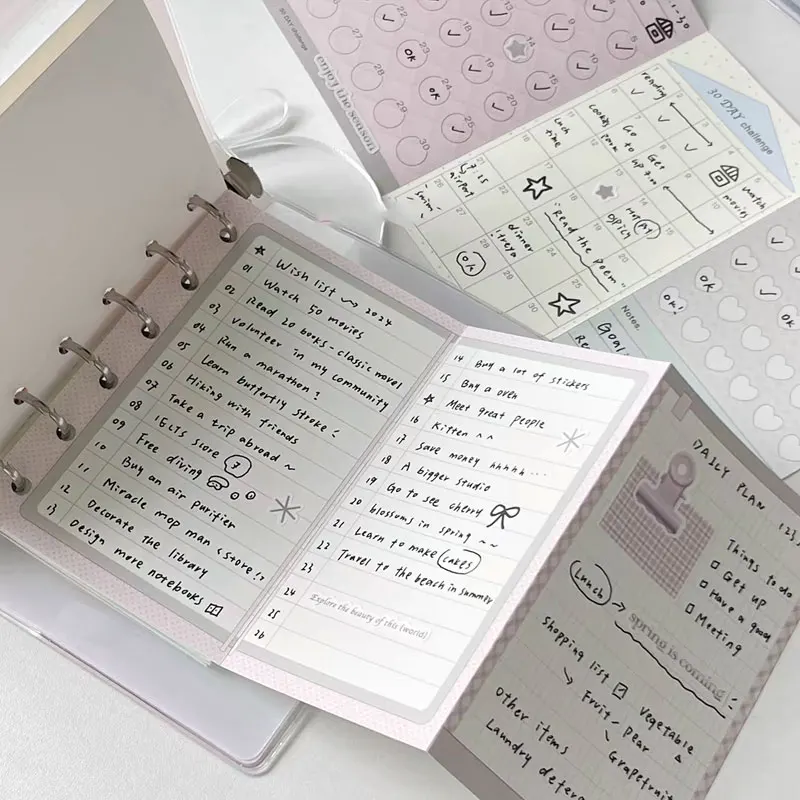 ★ Wish list ~> 2024
01 Watch 50 movies
02 Read 20 books - classic novel
03 Volunteer in my community
04 Run a marathon?
05 Learn butterfly stroke
06 Hiking with friends
07 Take a trip abroad ~
08 IELTS score 7
09 Free diving
10 Buy an air purifier
11 Miracle mop man (Store!)
12 Decorate the library
13 Design more notebooks
14 Buy a lot of stickers
15 Buy a oven
★ Meet great people
16 Kitten ^^
17 Save money hhhhh...
18 A bigger studio
19 Go to see cherry
20 blossoms in spring ~~
21 Learn to make cakes
22 Travel to the beach in summer
23
24 Explore the beauty of this (world)
25
26
DAILY PLAN
Things to do
Get up
Have a good
Meeting
Lunch →
spring is coming
Shopping list ☑ Vegetable
Fruit - Pear
Grapefruit
Other items
Laundry
30 DAY challenge
enjoy the season
22 ✓
OK
24 OK
25 ✓
28
29
30
14
15 ✓
20 ✓
30 DAY challenge
reading
watch
movies
Lunch
time
Go
to
Get
airport
swim
dinner
OK
"Read the poem"
Notes.
Goal
OK
OK!
OK